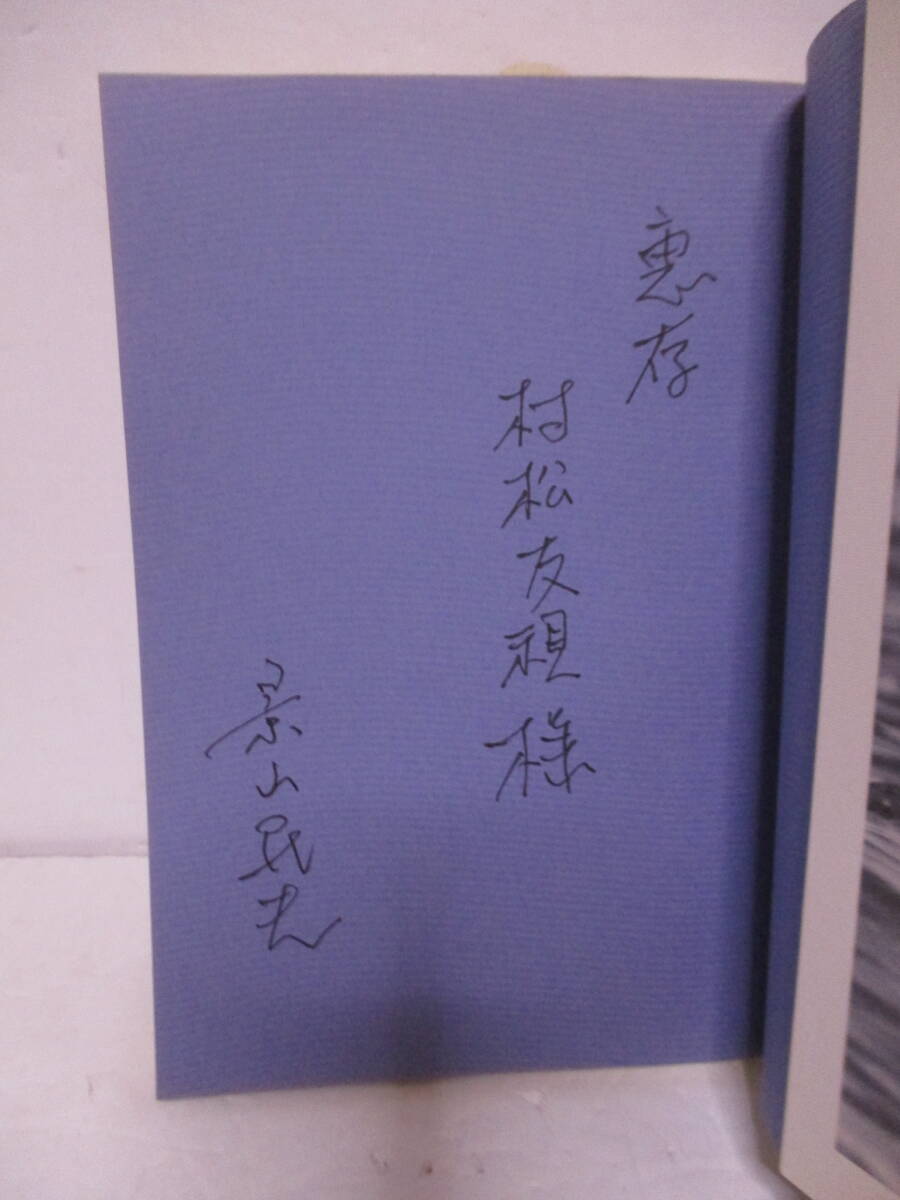 恵存
村松友視様
景山民夫